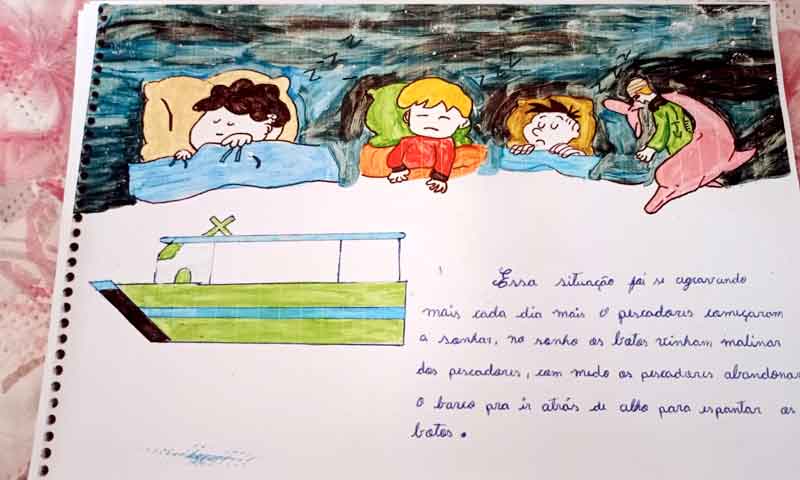 zzz
zzz
zzz
Essa situação foi se agravando
mais cada dia mais o pescadores começaram
a sonhar, no sonho os botos vinham malinar
dos pescadores, com medo os pescadores abandonar
o barco pra ir atrás de alho para espantar os
botos.